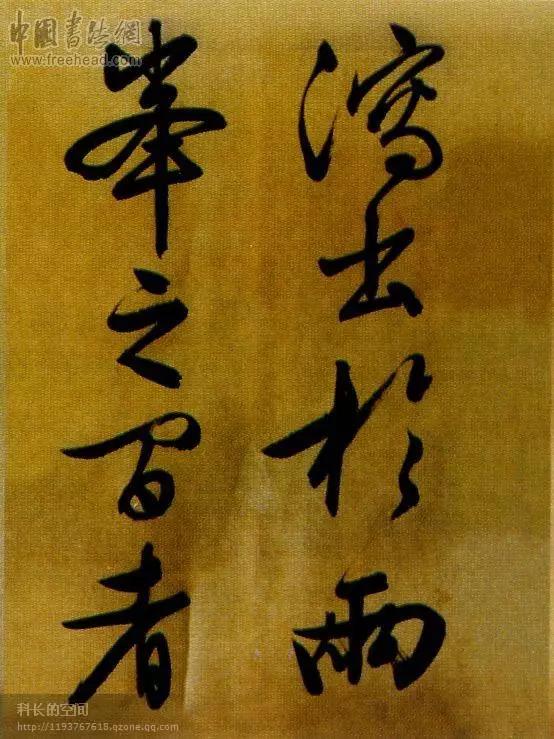 中國書法網
www.freehead.com
瀉出於兩
峯之間者
科长的空间
http://1193767618.qzone.qq.com